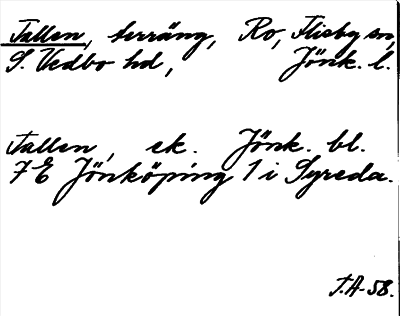 Tallen, terräng, Ro, Flisby sn,
S. Vedbo hd, Jönk. l.
Tallen, ek. Jönk. bl.
7E Jönköping 1 i Syreda.
T.A-58.